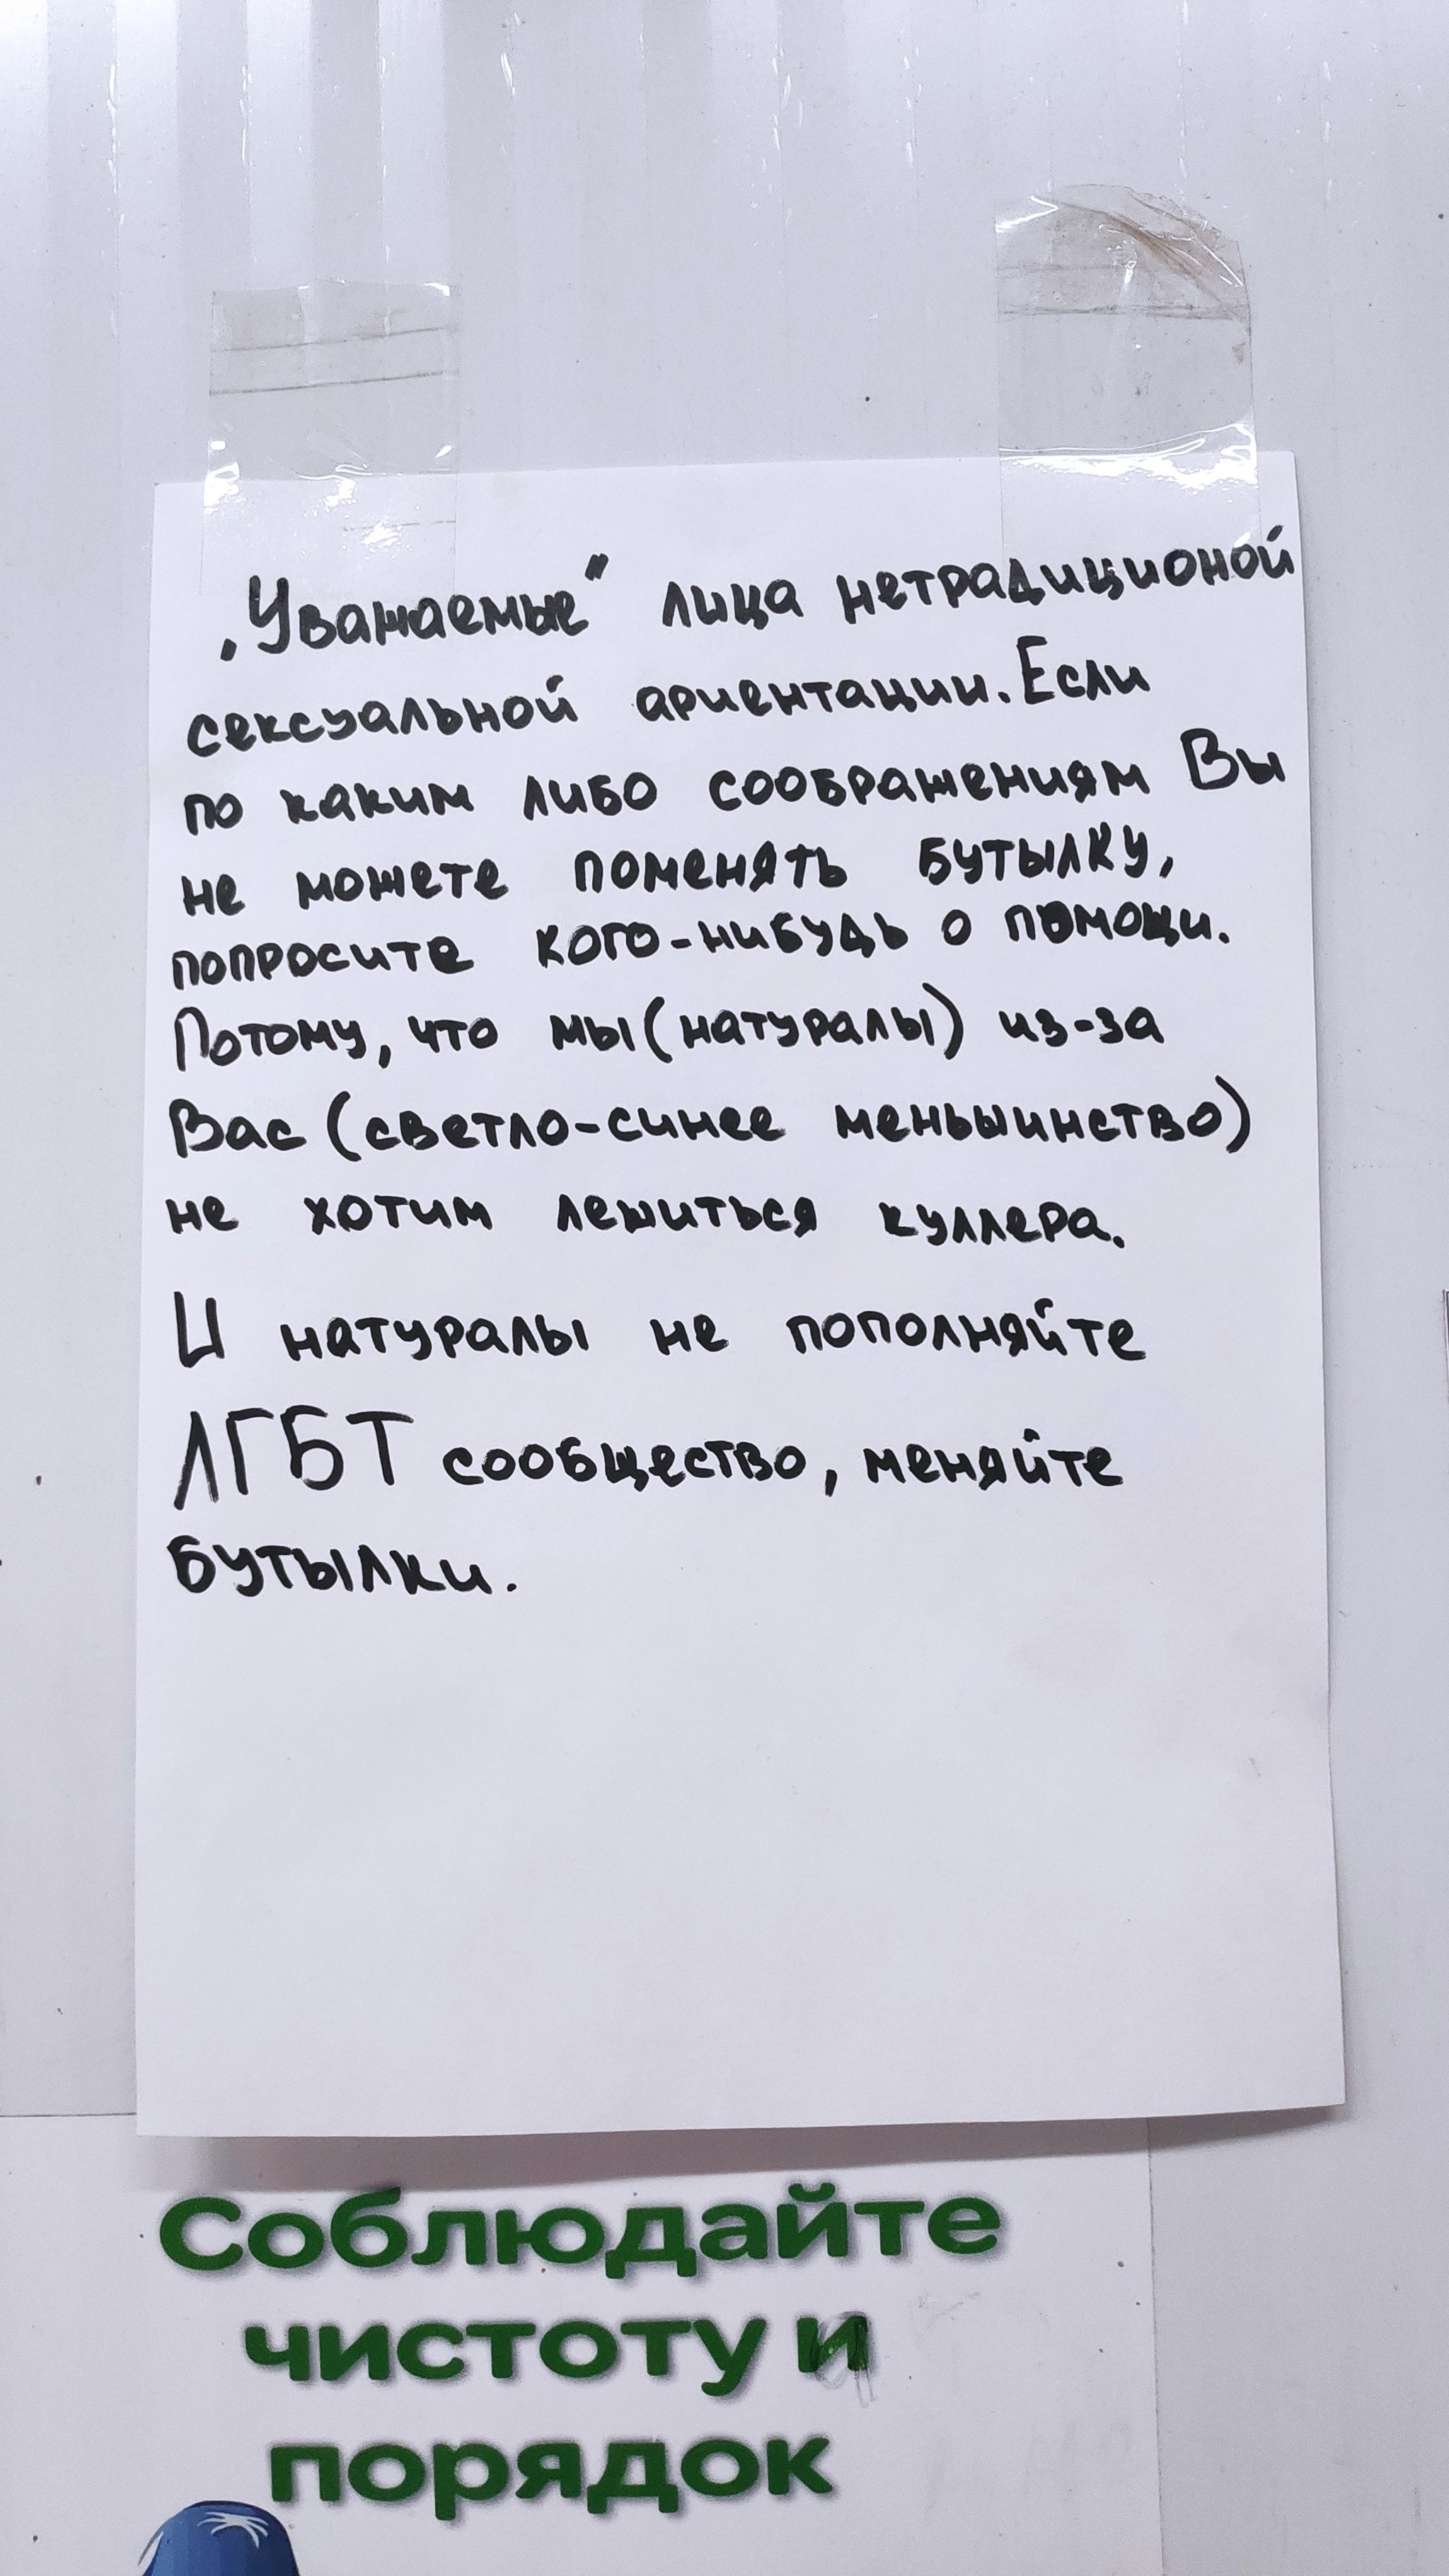 „Уважаемые" лица нетрадиционой
сексуальной ариентации. Если
по каким либо соображениям Вы
не можете поменять бутылку,
попросите кого-нибудь о помощи.
Потому, что мы (натуралы) из-за
Вас (светло-синее меньшинство)
не хотим лешиться куллера.
И натуралы не пополняйте
ЛГБТ сообщество, меняйте
бутылки.
Соблюдайте
чистоту и
порядок